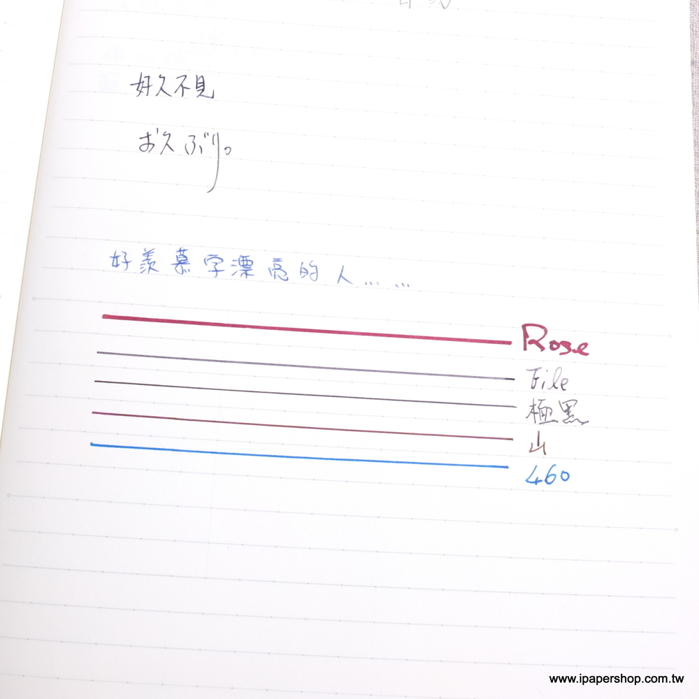 好久不見
お久ぶり。
好羨慕字漂亮的人……
Rose
File
極黑
山
460
www.ipapershop.com.tw